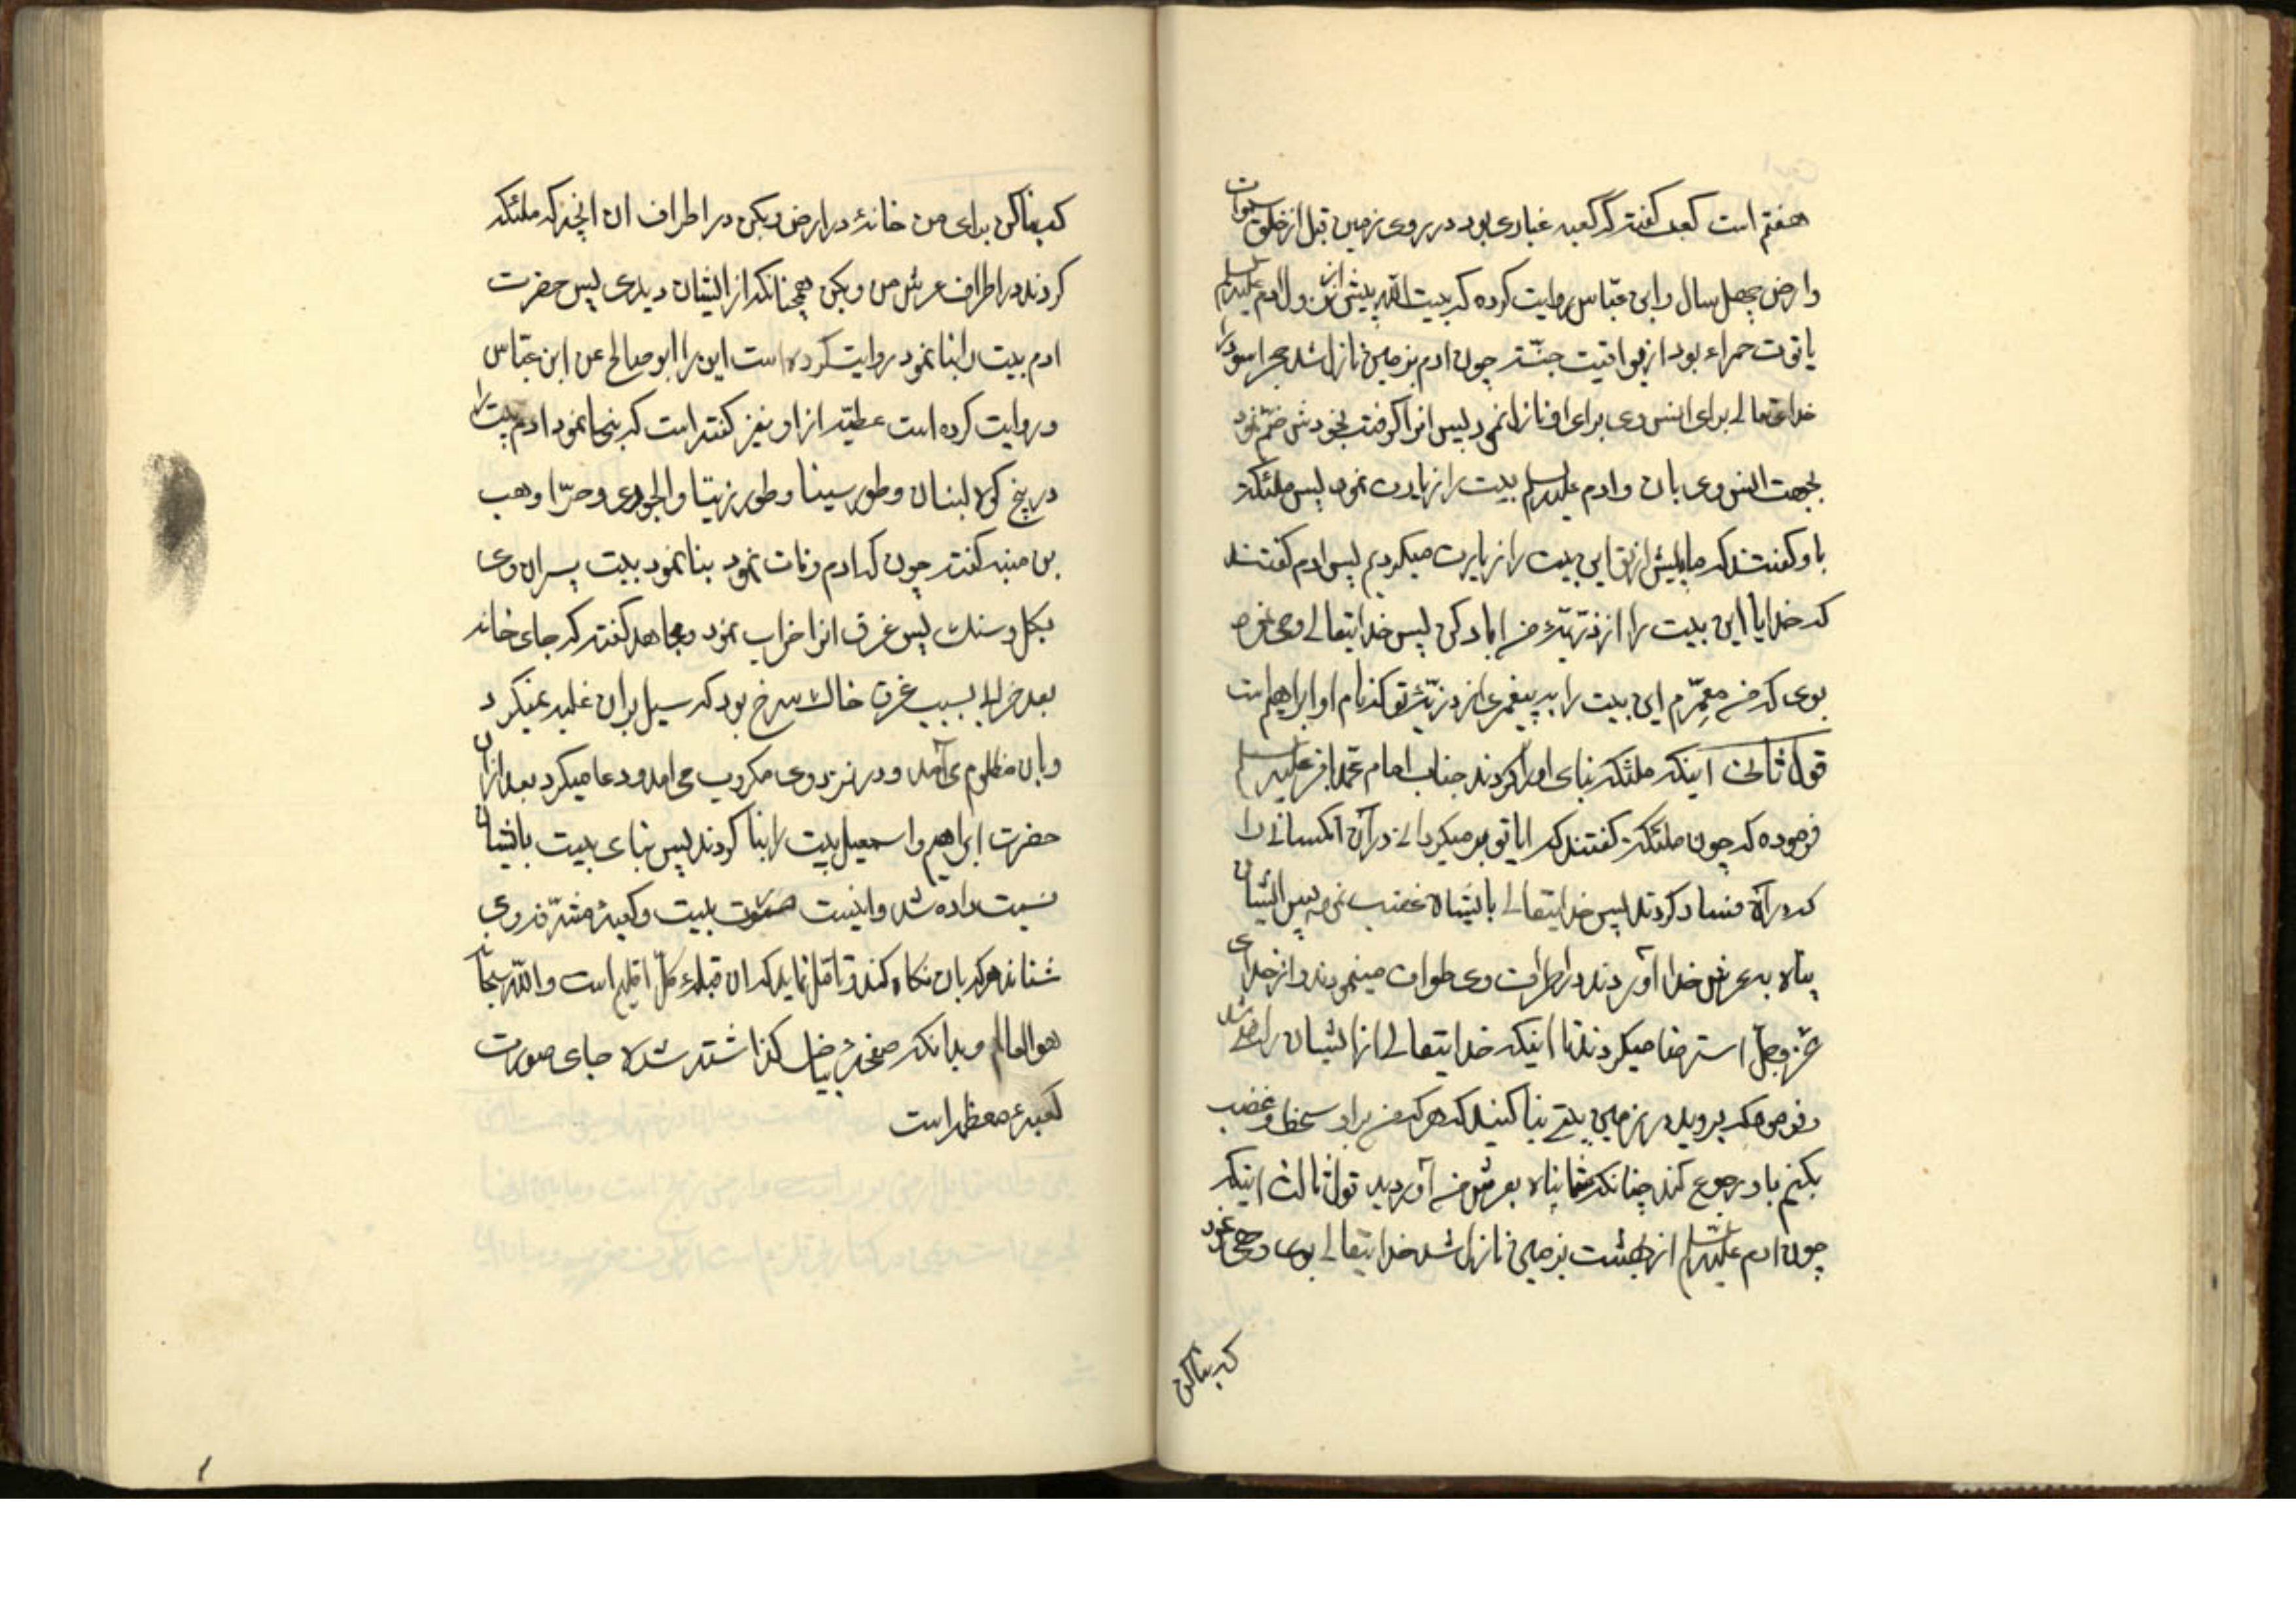 هفتم است کعب گفته که کعبه غباری بود در روی زمین قبل از خلق سموات
وارض چهل سال وابن عباس روایت کرده که بیت الله پیش از نزول ادم علیه السلم
یاقوت حمراء بود از یواقیت جنّت چون ادم بزمین نازل شد حجر اسود را
خدایتعالی برای انس وی برای او نازل نمود پس انرا گرفت بخودش ضمّ نمود
بجهت انس وی بان وادم علیه السلم بیت را زیارت نمود پس ملئکه
باو گفتند که ما پیش از تو این بیت را زیارت میکردیم پس ادم گفتند
که خدایا این بیت را از ذرّیّهٔ من اباد کن پس خدایتعالی وحی نمود
بوی که من معمّرم این بیت را به پیغمبری از ذرّیّهٔ تو که نام او ابراهیم است
قول ثانی اینکه ملئکه بنای او را کردند جناب امام محمد باقر علیه السلم
فرموده که چون ملئکه گفتند که ایا تو بر میکردانی در آن آنکسانی را
که در آن فساد کردند پس خدایتعالی بایشان غضب نمود پس ایشان
پناه به عرش خدا آوردند در اطراف وی طواف مینمودند واز خدای
عزّ وجلّ استرضا میکردند تا اینکه خدایتعالی از ایشان راضی شد
وفرمود که بروید در زمین بیتی بنا کنید که هر که من براو سخط وغضب
بکنم باو رجوع کند چنانکه شما پناه بعرش من آوردید قول ثالث اینکه
چون ادم علیه السلم از بهشت بزمین نازل شد خدایتعالی بوی وحی نمود
که بنا کن
که بنا کن برای من خانهٔ در ارض وبکن در اطراف ان انچه که ملئکه
کردند در اطراف عرش من وبکن همچنانکه از ایشان دیدی پس حضرت
ادم بیت را بنا نمود روایت کرده است این را ابو صالح عن ابن عبّاس
وروایت کرده است عطیّه از او نیز گفته است که بنا نمود ادم بیت را
در پنج کوه لبنان وطور سینا وطور زیتا والجودی وحرّا وهب
بن منبه گفته چون که ادم وفات نمود بنا نمود بیت پسران وی
بکل وسنك پس غرق انرا خراب نمود ومجاهد گفته که جای خانه
بعد خرابی بسبب غرق خاك سرخ بود که سیل بران غلبه نمیکرد
وبان مظلوم می آمد ودر نزد وی مکروب می امد ودعا میکرد بعد ازان
حضرت ابراهیم واسمعیل بیت را بنا کردند پس بنای بیت بایشان
نسبت داده شد واینست صورت بیت وکعبهٔ مشرّفه روی
شناند هر که بان نکاه کند وتامل نماید که ان قبلهٔ کلّ اقلیم است والله سبحانه
هو العالم وبدانکه صفحهٔ بیاض کذاشته شده جای صورت
کعبهٔ معظمه است